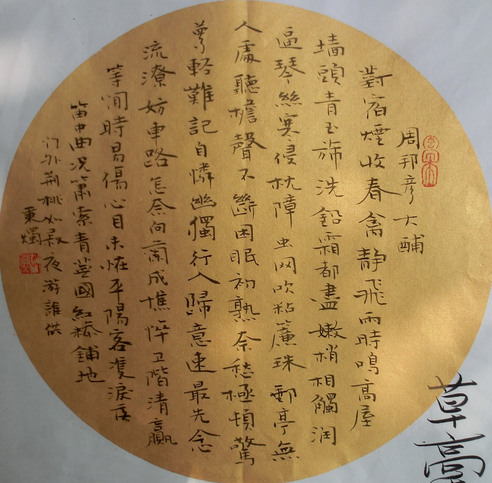 周邦彦大酺
對宿煙收春禽靜飛雨時鳴高屋
墻頭青玉旆洗鉛霜都盡嫩梢相觸潤
逼琴絲寒侵枕障虫网吹粘簾珠郵亭無
人處聽檐聲不斷困眠初熟奈愁極頻驚
夢輕難記自憐幽獨行人歸意速最先念
流潦妨車路怎奈向蘭成憔悴卫階清羸
等閒時易傷心目未怪平陽客雙淚落
笛中曲况蕭索青蕪國紅糝鋪地
门外荆桃如菽夜游誰供
秉燭
草